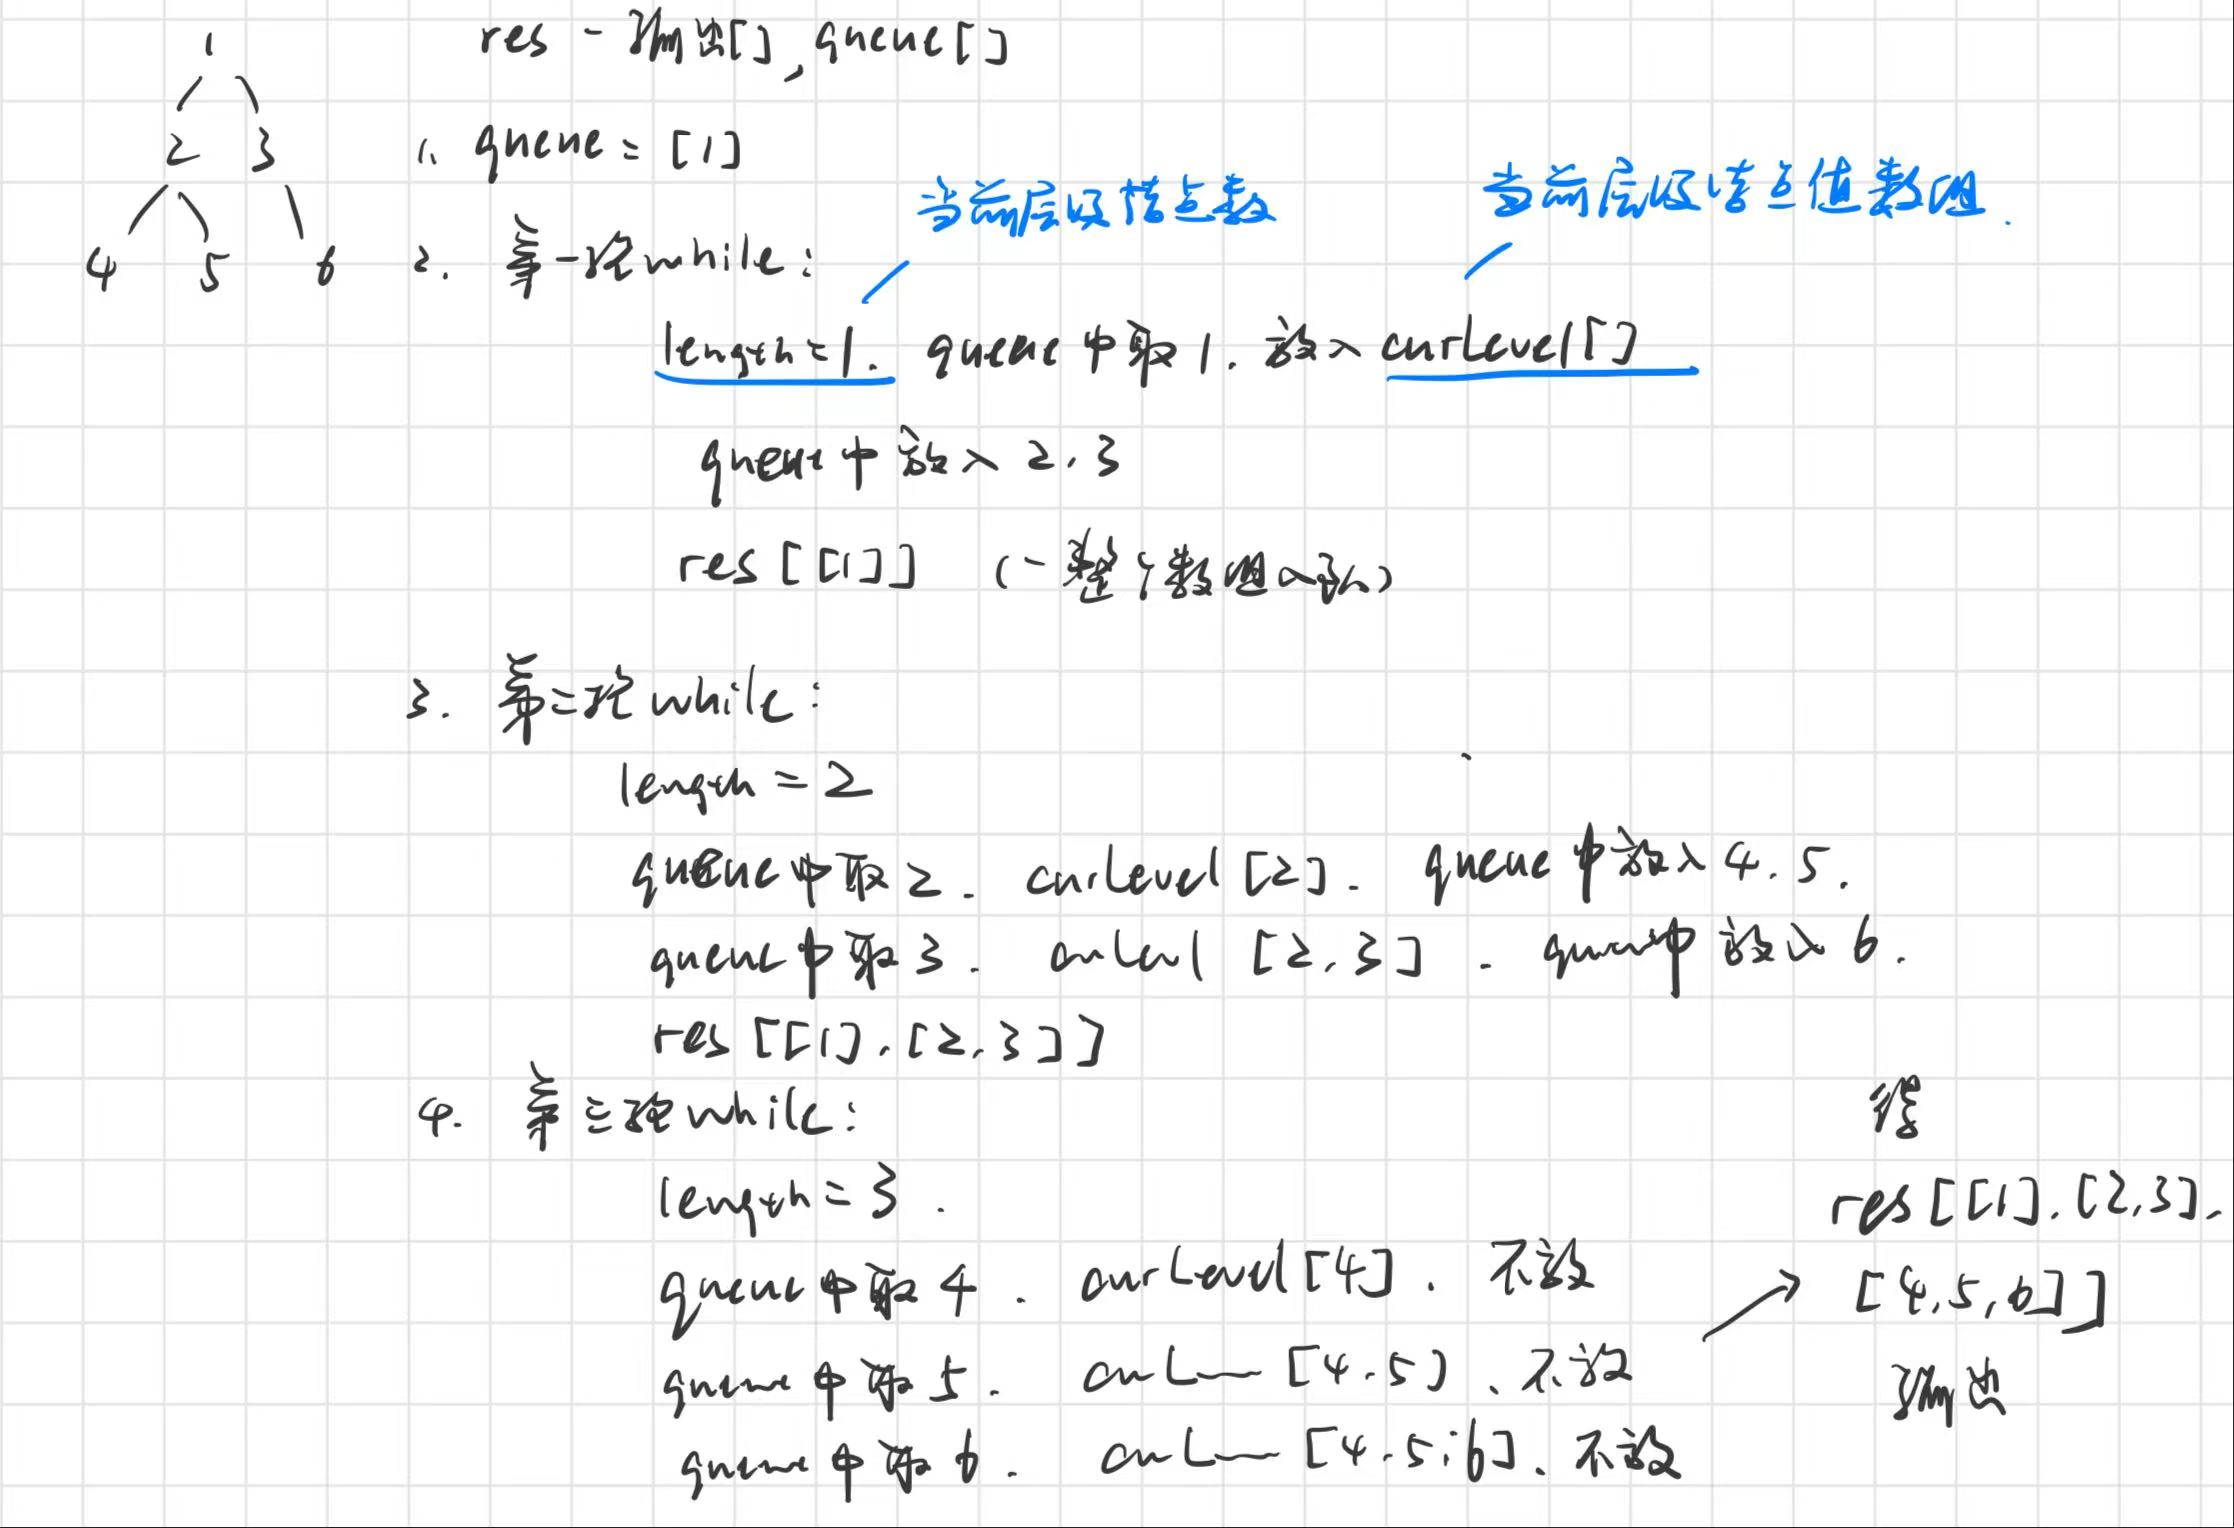 1
2 3
4 5 6
res - 输出[], queue[]
1. queue = [1]
当前层级结点数
当前层级结点值数组.
2. 第一轮while:
length=1. queue中取1. 放入curLevel[]
queue中放入2,3
res[[1]] (一整个数组入队)
3. 第二轮while:
length = 2
queue中取2. curLevel[2]. queue中放入4,5.
queue中取3. [2,3]. 中放入6.
res[[1],[2,3]]
4. 第三轮while:
length = 3.
queue中取4. curLevel[4]. 不放
queue中取5. curL— [4,5]. 不放
queue中取6. curL— [4,5,6]. 不放
得
res[[1],[2,3],
[4,5,6]]
输出